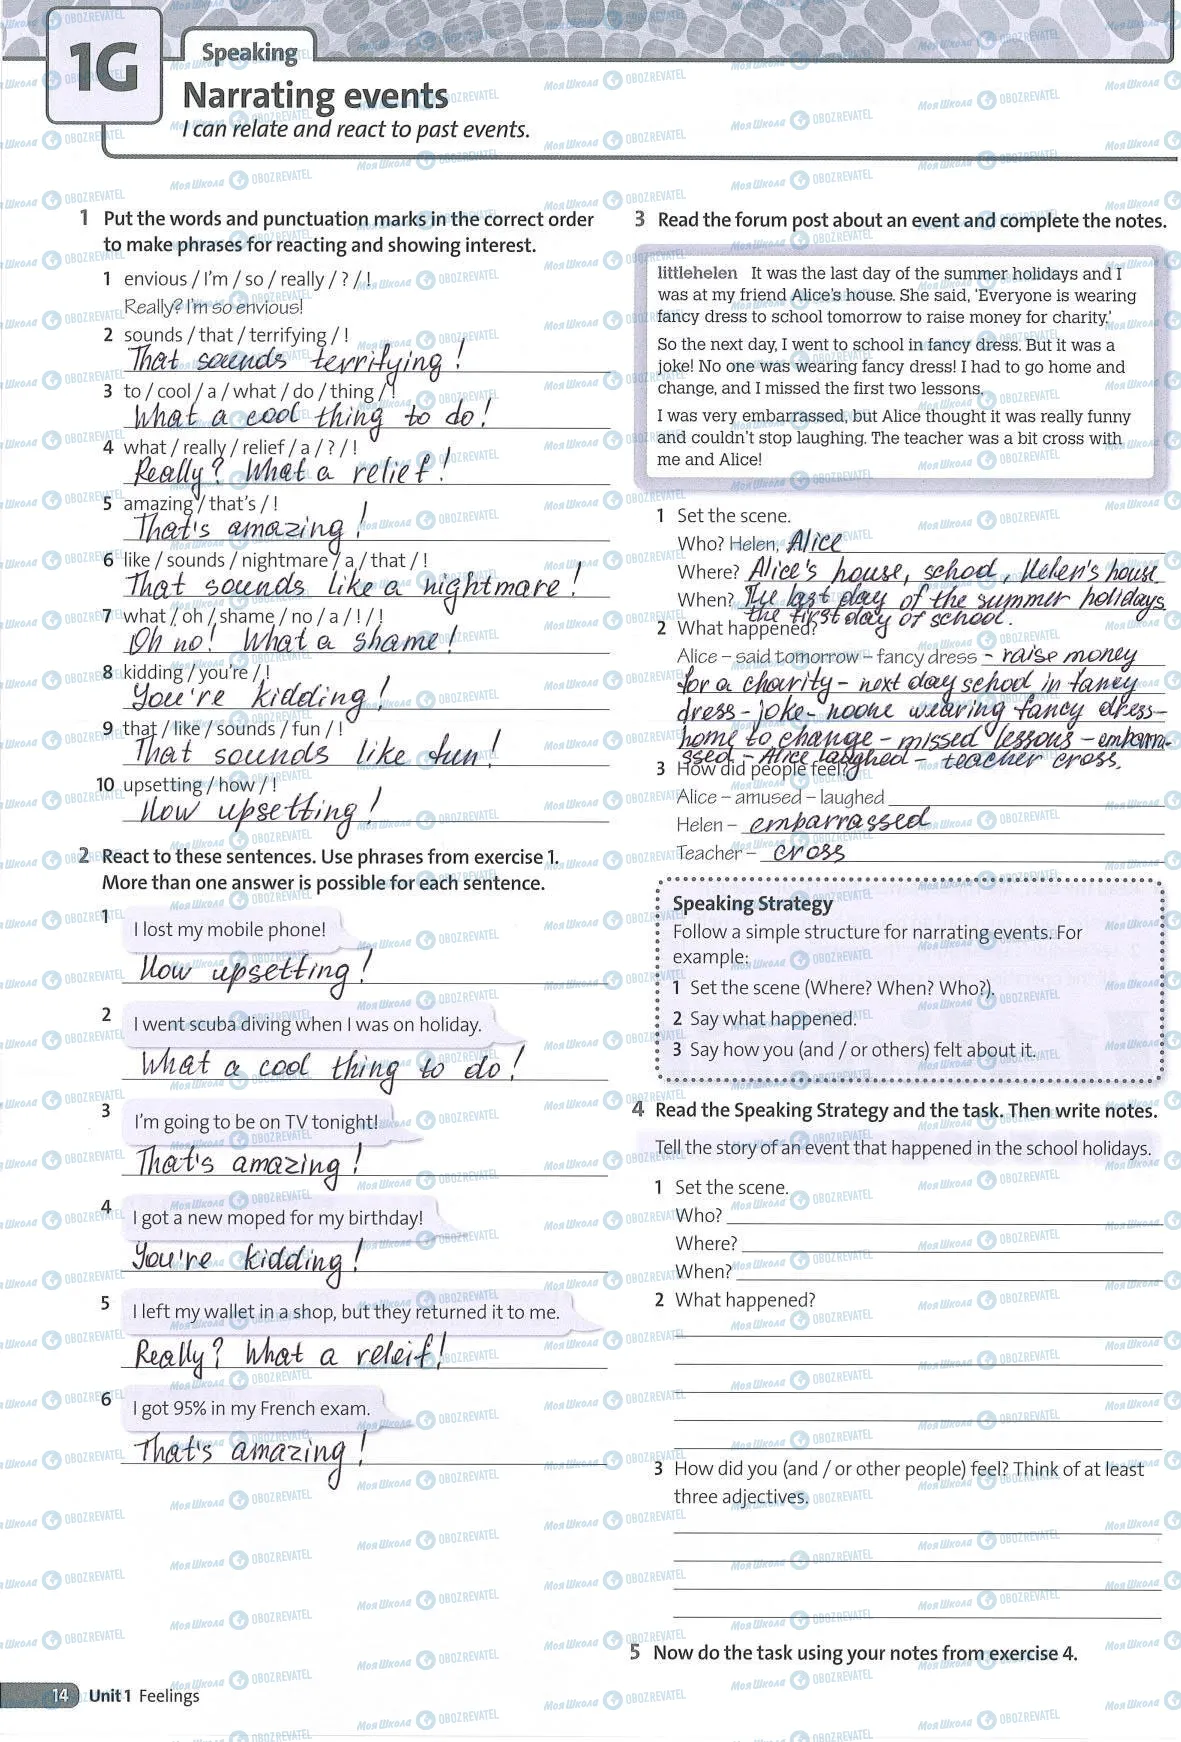 1G
Speaking
Narrating events
I can relate and react to past events.
1 Put the words and punctuation marks in the correct order
to make phrases for reacting and showing interest.
1 envious / I'm / so / really / ? / !
Really? I'm so envious!
2 sounds / that / terrifying / !
That sounds terrifying!
3 to / cool / a / what / do / thing / !
What a cool thing to do!
4 what / really / relief / a / ? / !
Really? What a relief!
5 amazing / that's / !
That's amazing!
6 like / sounds / nightmare / a / that / !
That sounds like a nightmare!
7 what / oh / shame / no / a / ! / !
Oh no! What a shame!
8 kidding / you're / !
You're kidding!
9 that / like / sounds / fun / !
That sounds like fun!
10 upsetting / how / !
How upsetting!
2 React to these sentences. Use phrases from exercise 1.
More than one answer is possible for each sentence.
1 I lost my mobile phone!
How upsetting!
2 I went scuba diving when I was on holiday.
What a cool thing to do!
3 I'm going to be on TV tonight!
That's amazing!
4 I got a new moped for my birthday!
You're kidding!
5 I left my wallet in a shop, but they returned it to me.
Really? What a releif!
6 I got 95% in my French exam.
That's amazing!
3 Read the forum post about an event and complete the notes.
littlehelen It was the last day of the summer holidays and I
was at my friend Alice's house. She said, 'Everyone is wearing
fancy dress to school tomorrow to raise money for charity.'
So the next day, I went to school in fancy dress. But it was a
joke! No one was wearing fancy dress! I had to go home and
change, and I missed the first two lessons.
I was very embarrassed, but Alice thought it was really funny
and couldn't stop laughing. The teacher was a bit cross with
me and Alice!
1 Set the scene.
Who? Helen, Alice
Where? Alice's house, school, Helen's house
When? The last day of the summer holidays
the first day of school.
2 What happened?
Alice – said tomorrow – fancy dress - raise money
for a charity - next day school in fancy
dress - joke - noone wearing fancy dress -
home to change - missed lessons - embarra-
ssed - Alice laughed - teacher cross.
3 How did people feel?
Alice – amused – laughed
Helen – embarrassed
Teacher – cross
Speaking Strategy
Follow a simple structure for narrating events. For
example:
1 Set the scene (Where? When? Who?).
2 Say what happened.
3 Say how you (and / or others) felt about it.
4 Read the Speaking Strategy and the task. Then write notes.
Tell the story of an event that happened in the school holidays.
1 Set the scene.
Who?
Where?
When?
2 What happened?
3 How did you (and / or other people) feel? Think of at least
three adjectives.
5 Now do the task using your notes from exercise 4.
14 Unit 1 Feelings
Моя Школа OBOZREVATEL